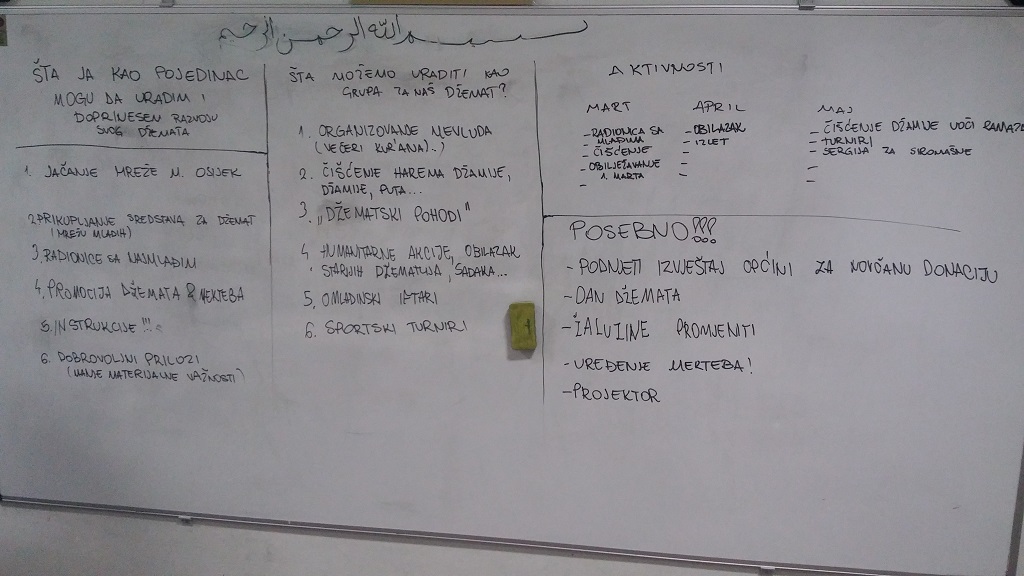 بسم الله الرحمن الرحيم
ŠTA JA KAO POJEDINAC
MOGU DA URADIM I
DOPRINESEM RAZVOJU
SVOG DŽEMATA
1. JAČANJE MREŽE M. OSIJEK
2. PRIKUPLJANJE SREDSTAVA ZA DŽEMAT
(MREŽU MLADIH)
3. RADIONICE SA NAJMLAĐIM
4. PROMOCIJA DŽEMATA I MEKTEBA
5. INSTRUKCIJE !!!
6. DOBROVOLJNI PRILOZI
(MANJE MATERIJALNE VAŽNOSTI)
ŠTA MOŽEMO URADITI KAO
GRUPA ZA NAŠ DŽEMAT?
1. ORGANIZOVANJE MEVLUDA
(VEČERI KUR'ANA)..)
2. ČIŠĆENJE HAREMA DŽAMIJE,
DŽAMIJE, PUTA...
3. „DŽEMATSKI POHODI"
4. HUMANITARNE AKCIJE, OBILAZAK
STARIJIH DŽEMATLIJA, SADAKA...
5. OMLADINSKI IFTARI
6. SPORTSKI TURNIRI
AKTIVNOSTI
MART
- RADIONICA SA
MLADIMA
- ČIŠĆENJE
- OBILJEŽAVANJE
1. MARTA
-
APRIL
- OBILAZAK
- IZLET
-
-
-
MAJ
- ČIŠĆENJE DŽAMIJE UOČI RAMAZA
- TURNIRI
- SERGIJA ZA SIROMAŠNE
-
-
POSEBNO!!!
- PODNIJETI IZVJEŠTAJ OPĆINI ZA NOVČANU DONACIJU
- DAN DŽEMATA
- ŽALUZINE PROMJENITI
- UREĐENJE MEKTEBA!
- PROJEKTOR